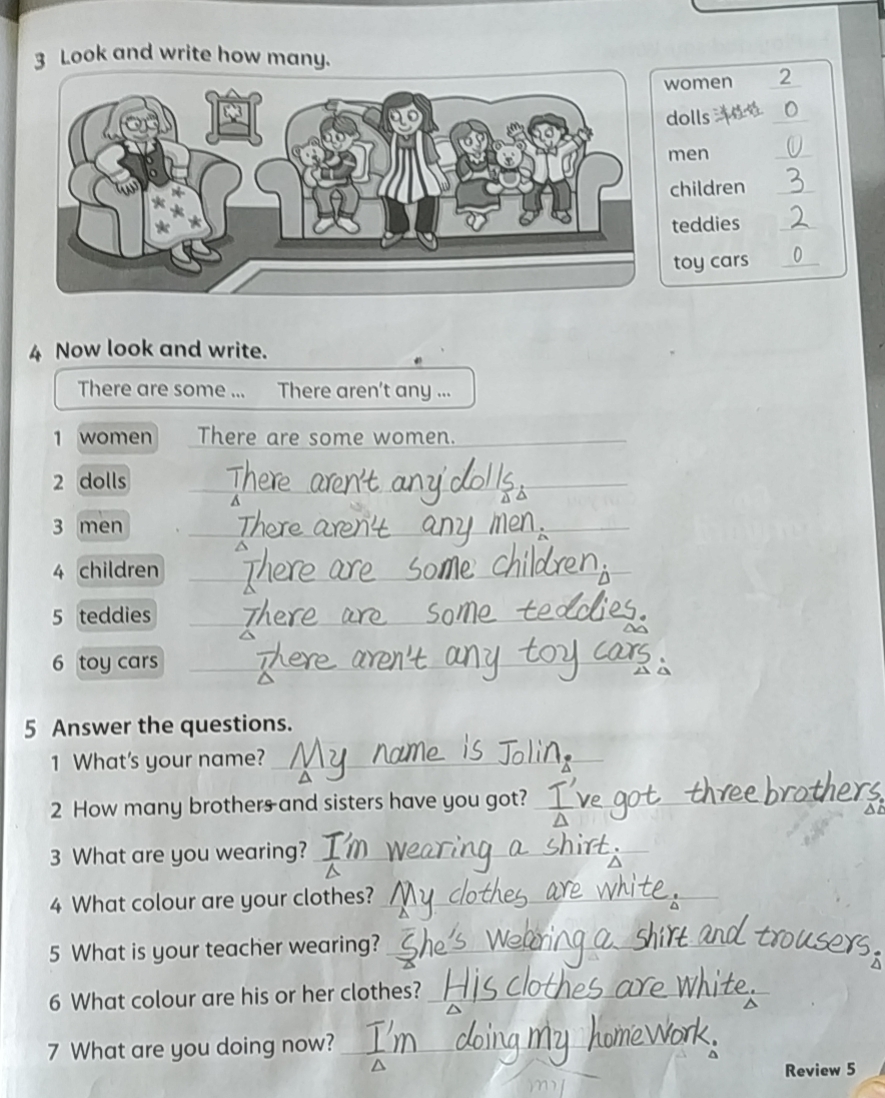 3 Look and write how many.
women 2
dolls 洋娃娃 0
men 0
children 3
teddies 2
toy cars 0
4 Now look and write.
There are some ... There aren't any ...
1 women There are some women.
2 dolls There aren't any dolls.
3 men There aren't any men.
4 children There are some children.
5 teddies There are some teddies.
6 toy cars There aren't any toy cars.
5 Answer the questions.
1 What's your name? My name is Jolin.
2 How many brothers and sisters have you got? I've got three brothers.
3 What are you wearing? I'm wearing a shirt.
4 What colour are your clothes? My clothes are white.
5 What is your teacher wearing? She's wearing a shirt and trousers.
6 What colour are his or her clothes? His clothes are white.
7 What are you doing now? I'm doing my homework.
my
Review 5